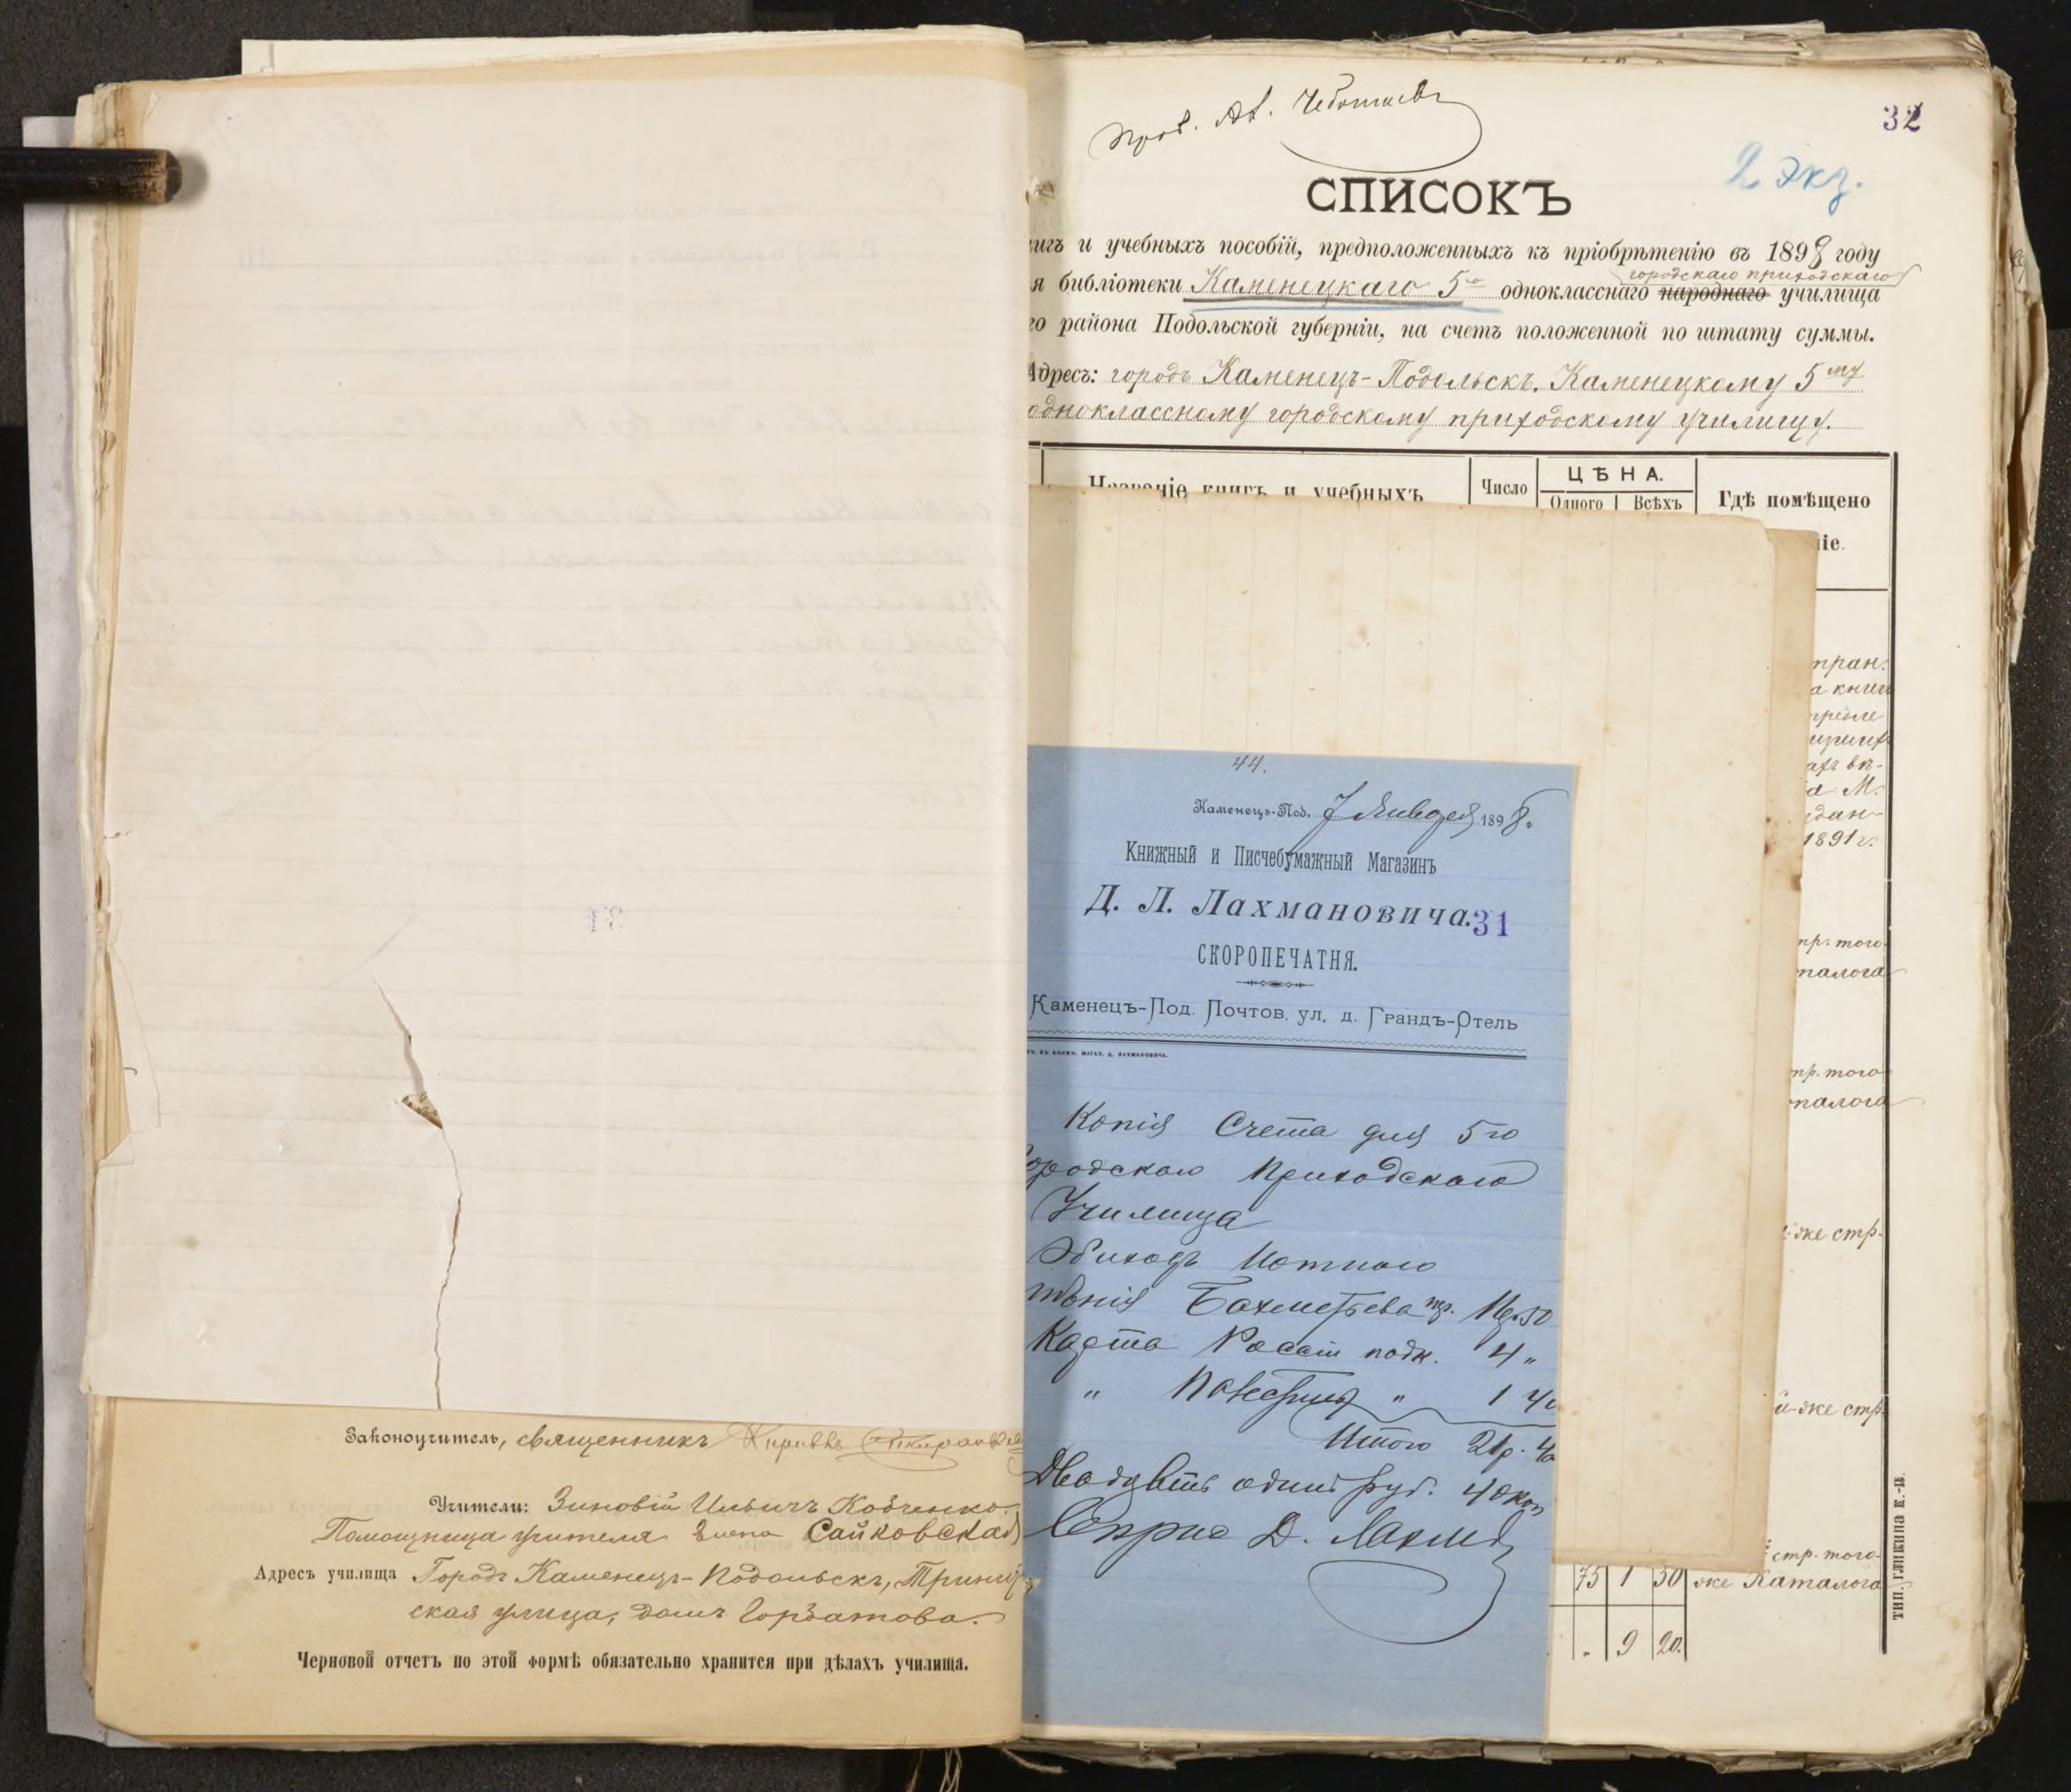 Законоучитель, священникъ
Учители: Зиновій Ильичъ Кобченко.
Помощница учителя Елена Сайковская
Адресъ училища Городъ Каменецъ-Подольскъ,
ская улица, домъ Горбатова.
Черновой отчетъ по этой формѣ обязательно хранится при дѣлахъ училища.
32
2 экз.
СПИСОКЪ
игъ и учебныхъ пособій, предположенныхъ къ пріобрѣтенію въ 1898 году
городскаго приходскаго
я библіотеки Каменецкаго 5го однокласснаго народнаго училища
го района Подольской губерніи, на счетъ положенной по штату суммы.
Адресъ: городъ Каменецъ-Подольскъ. Каменецкому 5му
одноклассному городскому приходскому училищу.
Названіе книгъ и учебныхъ
Число
ЦѢНА.
Одного Всѣхъ
Гдѣ помѣщено
іе.
стран.
а книги
М.
1891 г.
пр. того
талога
пр. того
талога
же стр.
й-же стр.
стр. того-
75 1 50 же Каталога
" 9 20.
ТИП. ГЛИКИНА К.-П.
44.
Каменецъ-Под. 7 Января 1898 г.
Книжный и Писчебумажный Магазинъ
Д. Л. Лахмановича.
31
СКОРОПЕЧАТНЯ.
Каменецъ-Под. Почтов. ул. д. Грандъ-Отель
Копія Счета для 5го
Городскаго Приходскаго
Училища
Обиходъ Нотнаго
пѣнія Бахметьева
Карта Россіи подк. 4 "
" " 1 40
Итого 21р. 40
Двадцать одинъ руб. 40 коп
Д. Лахма